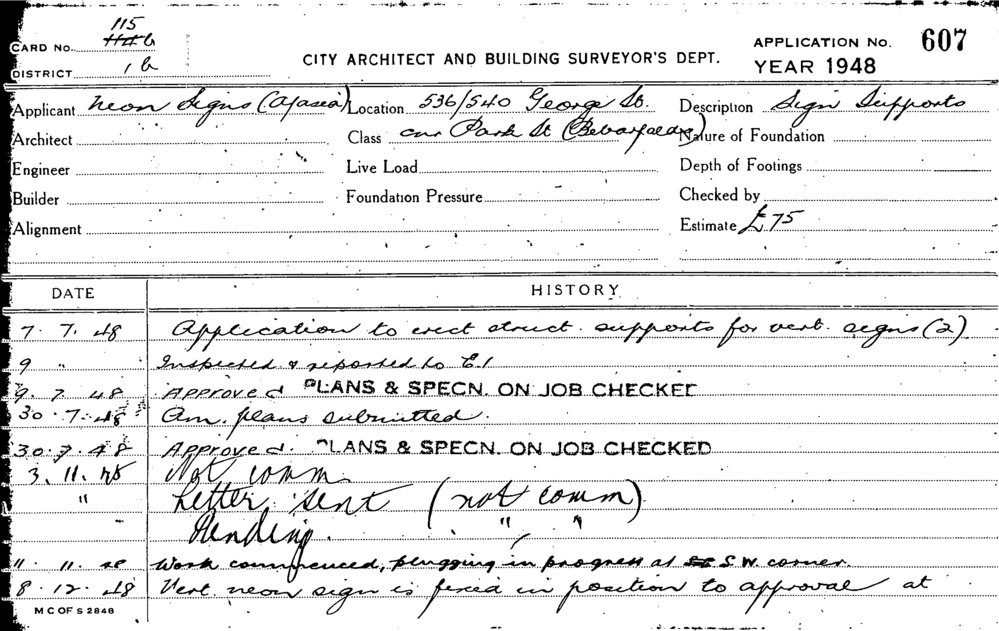 115
CARD No. 114 b
DISTRICT 1 b
CITY ARCHITECT AND BUILDING SURVEYOR'S DEPT.
APPLICATION No. 607
YEAR 1948
Applicant Neon Signs (A/asia) Location 536/540 George St. Description Sign Supports
Architect Class cnr Park St (Bebarfalds) Nature of Foundation
Engineer Live Load Depth of Footings
Builder Foundation Pressure Checked by
Alignment Estimate £75
DATE HISTORY
7. 7. 48 Application to erect struct. supports for vert. signs (2)
9 " Inspected & reported to E.1
9. 7. 48 Approved PLANS & SPECN. ON JOB CHECKED
30. 7. 48 Am. plans submitted.
30. 7. 48 Approved. PLANS & SPECN. ON JOB CHECKED
3. 11. 48 Not comm.
" Letter sent (not comm)
Pending. " "
11. 11. 48 Work commenced, plugging in progress at S.W. corner.
8. 12. 48 Vert. neon sign is fixed in position to approval at
M C OF S 2848